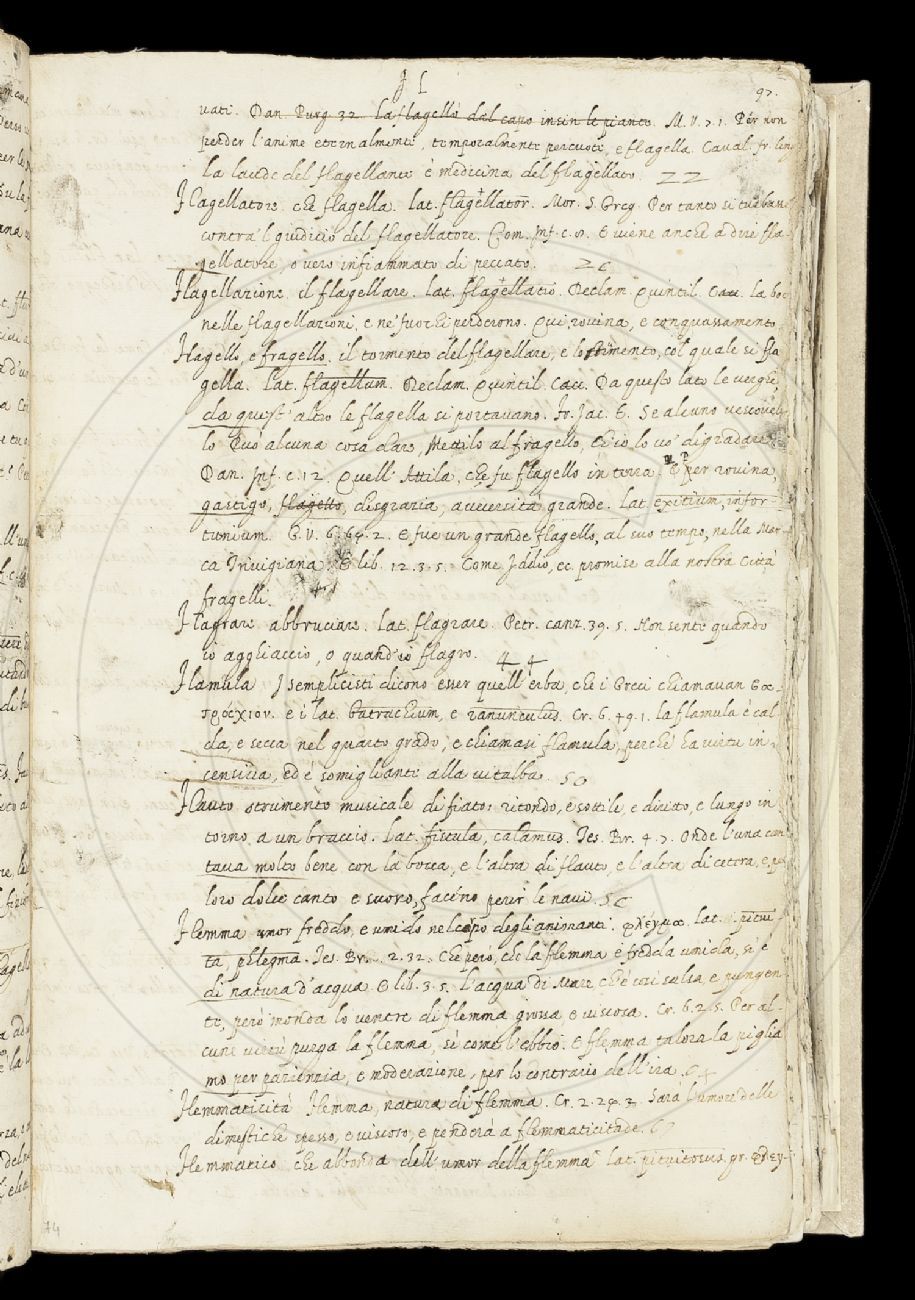 F L
97.
vati. Dan. Purg. 32. La flagellò dal capo insin le piante. M. V. 7. 1. Per non
perder l'anime eternalmente, temporalmente percuote, e flagella. Caval. fr. ling.
La laude del flagellante è medicina del flagellato. 22
Flagellatore. che flagella. lat. flagellator. Mor. S. Greg. Per tanto si turbava
contra 'l giudicio del flagellatore. Com. Inf. c. E viene anche a dire fla-
gellatore, o vero infiammato di peccato. 26
Flagellazione il flagellare. lat. flagellatio. Declam. Quintil. Cacc. La
nelle flagellazioni, e ne' fuochi perderono. Qui, rovina, e conquassamento
Flagello, e fragello. il tormento del flagellare, e lo stimento, col quale si fla
gella. Lat. flagellum. Declam. Quintil. Cacc. Da questo lato le verghe,
da quest' altro le flagella si portavano. Fr. Jac. T. Se alcuno vescovel-
lo può alcuna cosa dare, Mettilo al fragello, Ch'io lo vo' digradare
Dan. Inf. c. 12. Quell' Attila, che fu flagello in terra. E per rovina,
gastigo, flagello, disgrazia, avversità grande. Lat. exitium, infor-
tunium. G. V. 6. 69. 2. E fue un grande flagello, al suo tempo, nella Mar-
ca Trivigiana. E lib. 12. 3. 5. Come Iddio, ec. promise alla nostra Città
fragelli.
Flagrare abbruciare. Lat. flagrare. Petr. canz. 39. 5. Non sente quando
io agghiaccio, o quand'io flagro. 44
Flamula I semplicisti dicono esser quell' erba, che i Greci chiamavan βα-
τράχιον. e i lat. batrachium, e ranunculus. Cr. 6. 49. 1. la flamula è cal
da, e secca nel quarto grado, e chiamasi flamula, perchè ha virtù in-
censiva, ed è somigliante alla vitalba. 50
Flauto strumento musicale di fiato: ritondo, e sottile, e diritto, e lungo in
torno a un braccio. Lat. fistula, calamus. Tes. Br. 4. 7. Onde l'una can
tava molto bene con la bocca, e l'altra di flauto, e l'altra di cetera, e
loro dolce canto e suono, facéno perir le navi. 56
Flemma umor freddo, e umido nel corpo degli animanti. φλέγμα. lat. pitui
ta, phlegma. Tes. Br. 2. 32. Che però, che la flemma è fredda umida, si è
di natura d'acqua. E lib. 3. 5. L'acqua di Mare, ch'è così salsa, e pungen-
te, però monda lo ventre di flemma grossa e viscosa. Cr. 6. 2. 15. Per al-
cune virtù purga la flemma, sì come l'ebbio. E flemma talora la piglia
mo per pazienzia, e moderazione, per lo contrario dell' ira.
Flemmaticità Flemma, natura di flemma. Cr. 2. Sarà l'umore delle
dimestiche spesso, e viscoso, e penderà a flemmaticitade.
Flemmatico che abbonda dell' umor della flemma Lat. pituitosus. gr. φλεγ-
74